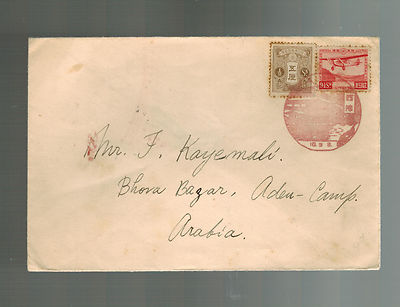 Mr. F. Kayemali.
Bhora Bazar, Aden-Camp.
Arabia.